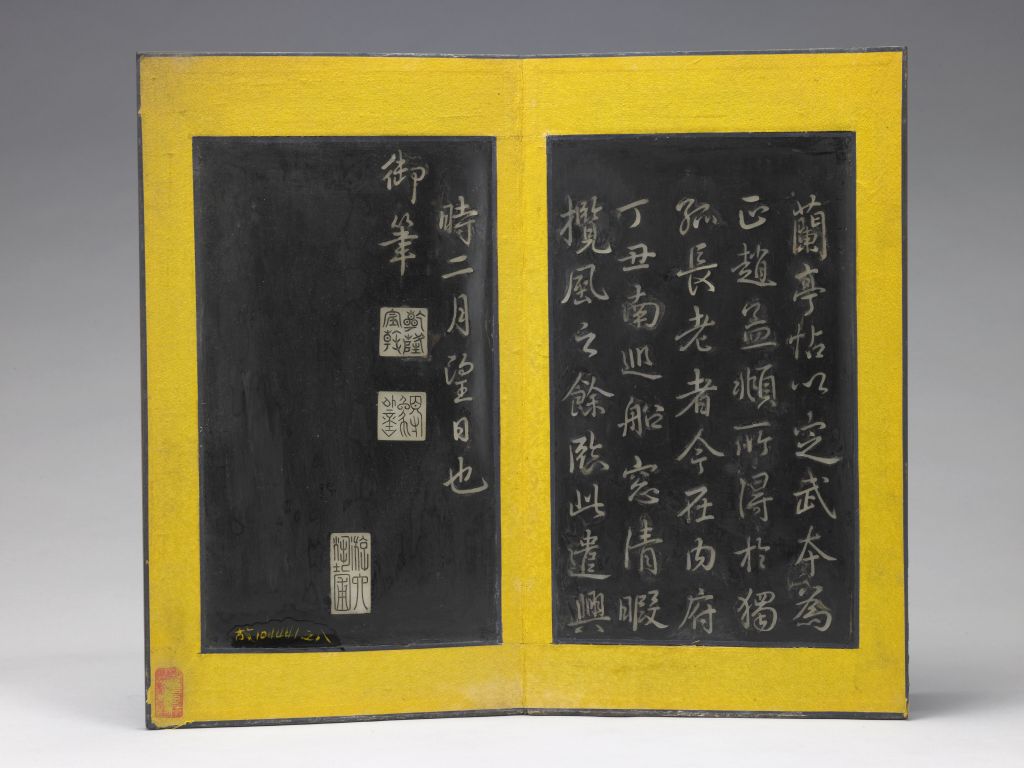 蘭亭帖以定武本為
正趙孟頫所得於獨
孤長老者今在内府
丁丑南巡船窓清暇
攬風之餘臨此遣興
時二月望日也
御筆
乾隆宸翰
游六藝圃
故101441之八